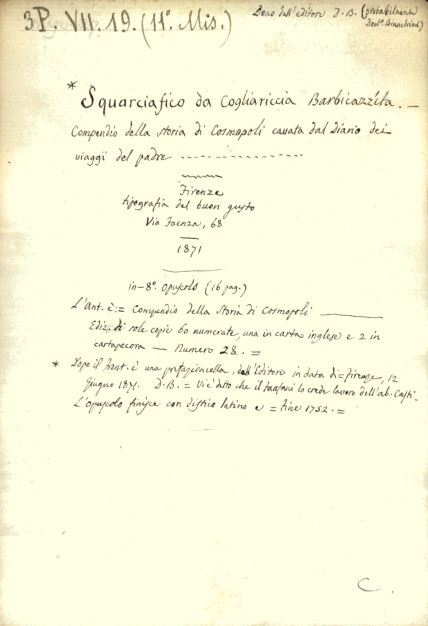 3P. VII. 19. (11º. Mis.)
Dono dell'editore D. B. (probabilmente
Domº. Bianchini)
* Squarciafico da Cogliariccia Barbicazzita. —
Compendio della storia di Cosmopoli cavata dal Diario dei
viaggi del padre - - - - - - - - - - - - - -
Firenze
tipografia del buon gusto
Via Faenza, 68
1871
in-8º. Opuscolo (16 pag.)
L'Ant. è := Compendio della Storia di Cosmopoli ———
Ediz. di sole copie 60 numerate, una in carta inglese e 2 in
cartapecora — Numero 28. =
* Dopo il front. è una prefazioncella, dell'Editore in data di = Firenze, 12
Giugno 1871. D. B. = Vi è detto che il Fanfani lo crede lavoro dell'ab. Casti. -
L'opuscolo finisce con distico latino e = Fine 1752. =
C.